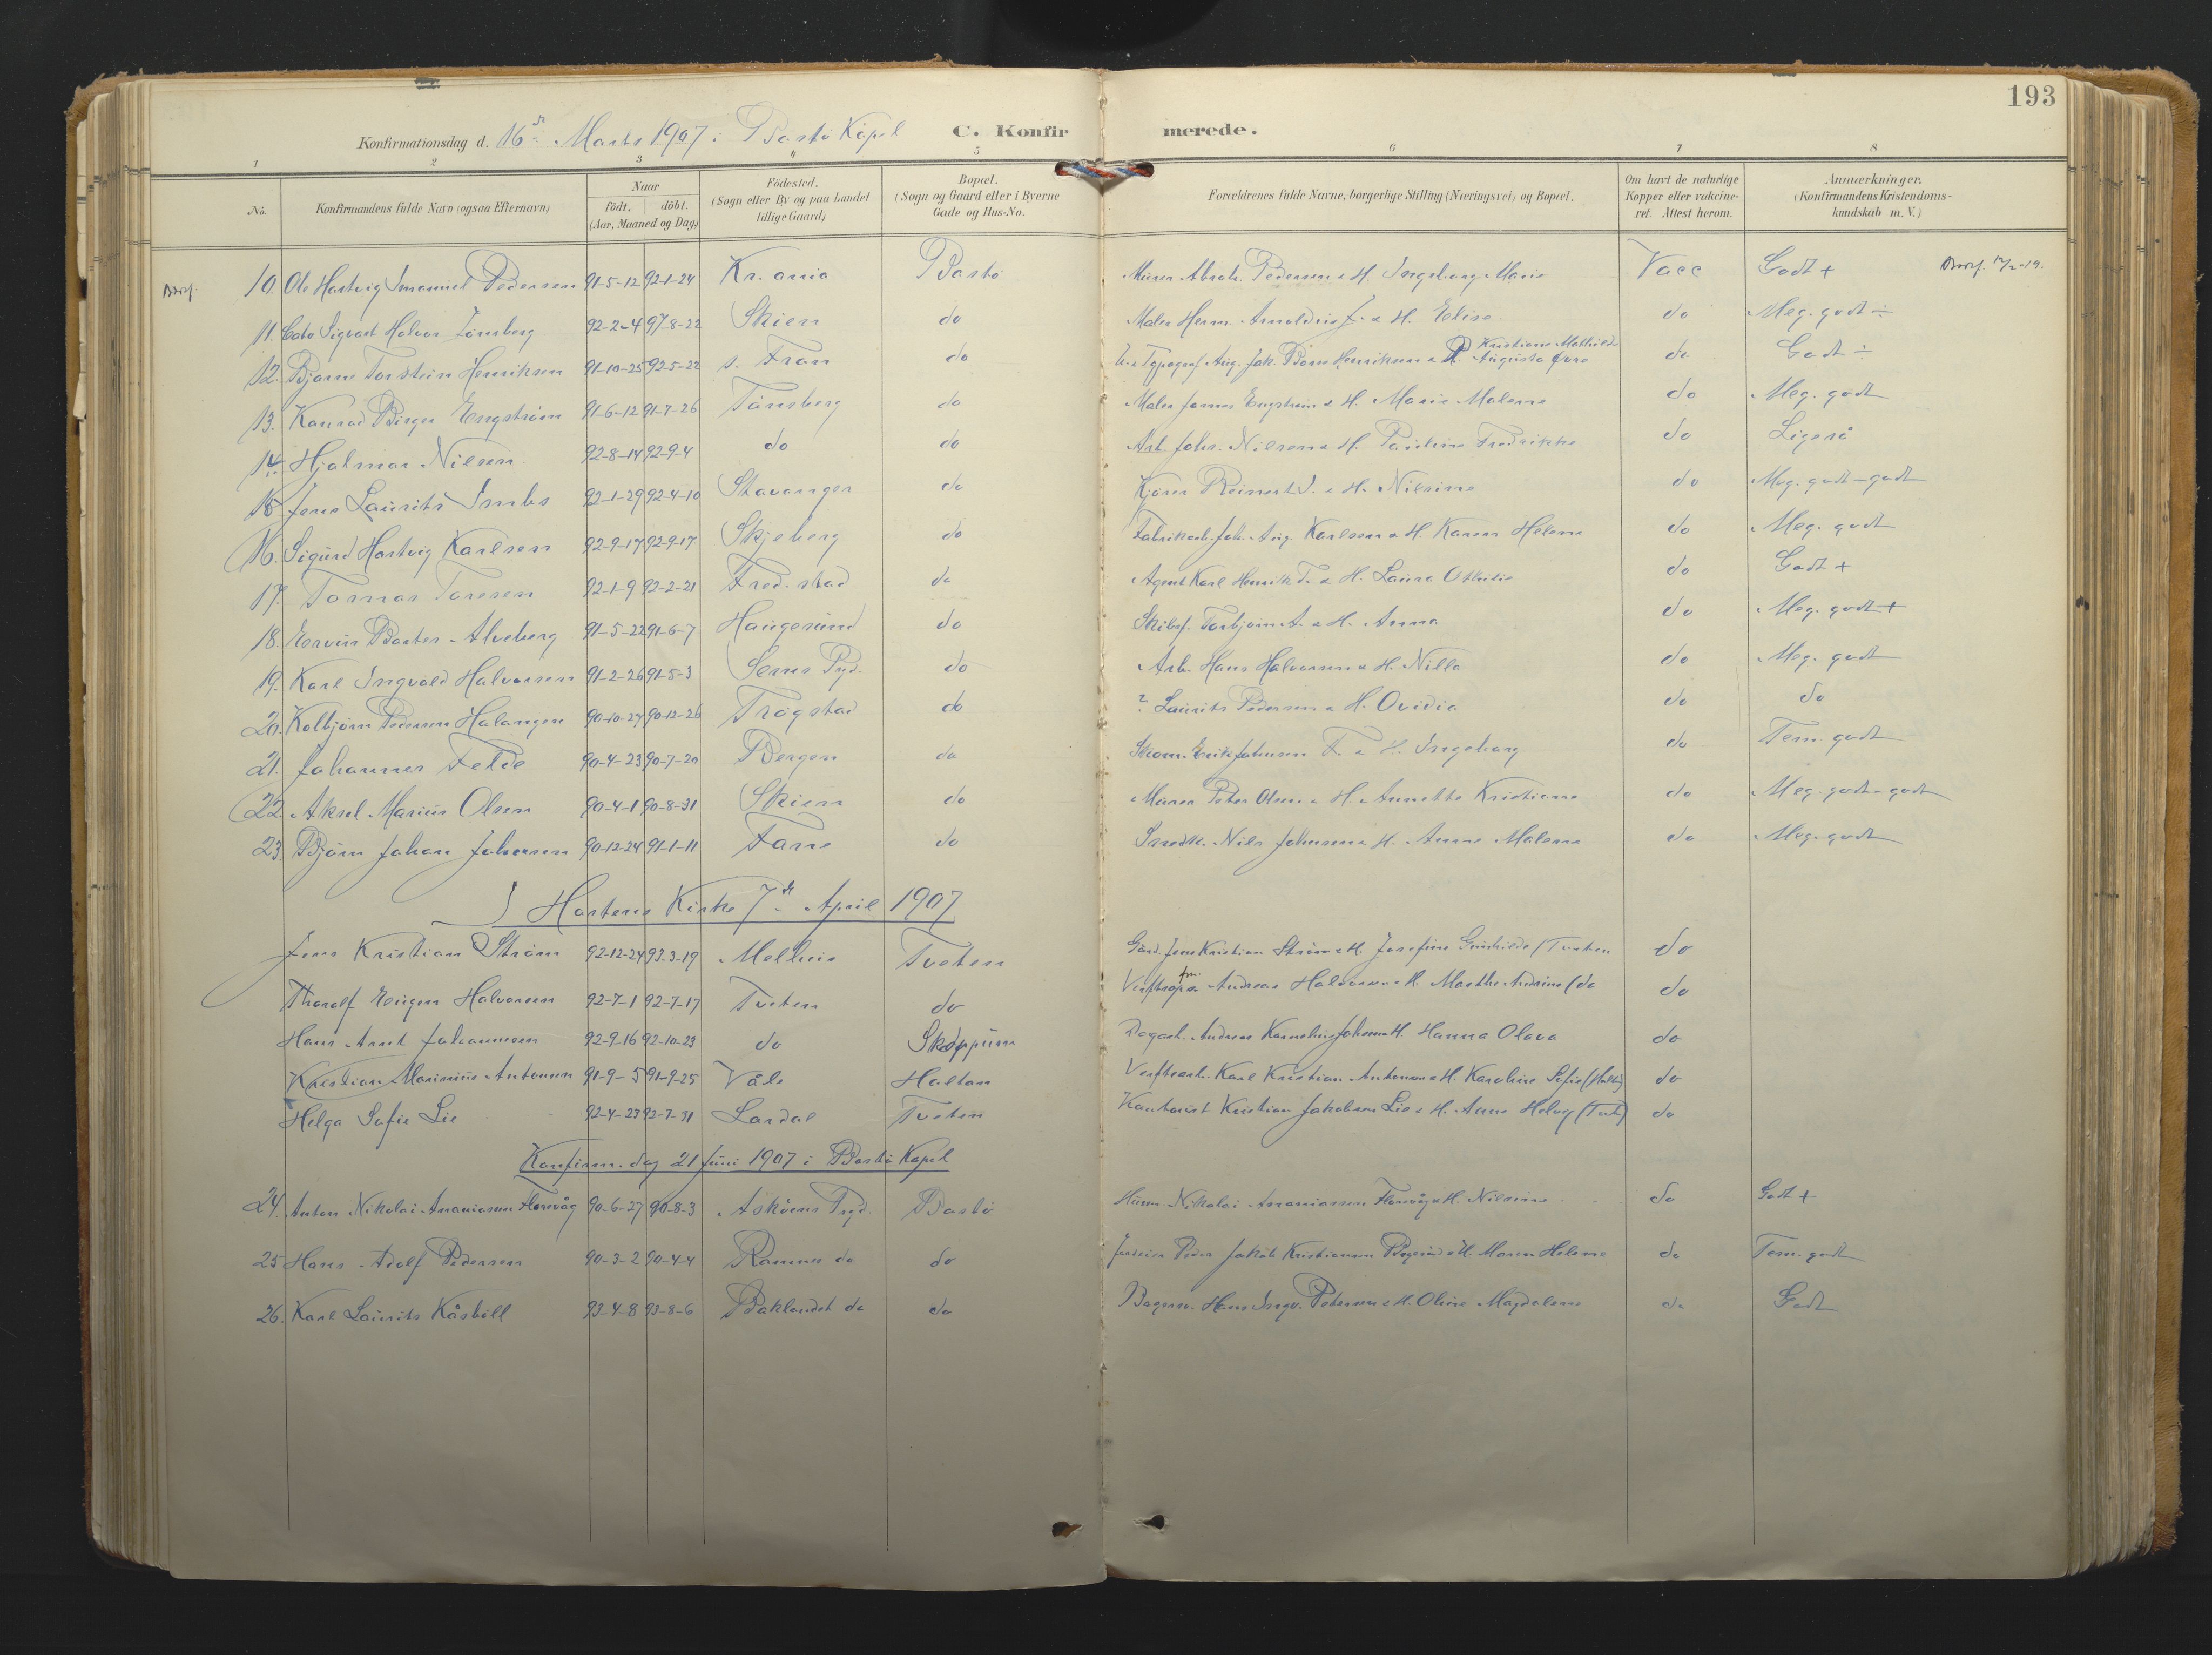 193
Konfirmationsdag d. 16de Marts 1907 i Bastö Kapel C. Konfirmerede.
1 2 3 4 5 6 7 8
No. Konfirmandens fulde Navn (ogsaa Efternavn) Naar födt. döbt. (Aar, Maaned og Dag) Födested. (Sogn eller By og paa Landet tillige Gaard) Bopæl. (Sogn og Gaard eller i Byerne Gade og Hus-No. Forældrenes fulde Navne, borgerlige Stilling (Næringsvei) og Bopæl. Om havt de naturlige Kopper eller vakcineret. Attest herom. Anmærkninger. (Konfirmandens Kristendomskundskab m. V.)
10. Ole Hartvig Imanuel Pedersen 91-5-12 92-1-24 Kr.ania Bastö Murer Abrah. Pedersen & H. Ingeborg Marie Vacc Godt +
11. Cato Sigvart Halvor 92-2-4 97-8-22 Skien do Maler Herm. Arnoldus J. & H. Elise do Meg. godt ÷
12. Bjarne Torstein Henriksen 91-10-25 92-5-22 s. Fron do Typograf Aug. Jak. Henriksen & Kristiane Mathilde Augusta do Godt ÷
13. Konrad Birger Engström 91-6-12 91-7-26 Tönsberg do Maler Johannes Engström & H. Marie Malene do Meg. godt
14. Hjalmar Nilsen 92-8-14 92-9-4 do do Arb. Johs. Nilsen & H. Pauline Fredrikke do Ligeså
15. Jens Laurits Imbs 92-1-29 92-4-10 Stavanger do Kjörer Reinert I. & H. Nilsine do Meg. godt - godt
16. Sigurd Hartvig Karlsen 92-9-17 92-9-17 Skjeberg do Fabrikarb. Joh. Aug. Karlsen & H. Karen Helene do Meg. godt
17. Tormar Toresen 92-1-9 92-2-21 Fred.stad do Agent Karl Henrik T. & H. Laura Othilie do Godt +
18. Ervin Baster Alveberg 91-5-22 91-6-7 Haugesund do Skibsf. Torbjörn A. & H. Anna do Meg. godt +
19. Karl Ingvald Halvorsen 91-2-26 91-5-3 Sems Pgd. do Arb. Hans Halvorsen & H. Nilla do Meg. godt
20. Kolbjörn Pedersen Halangen 90-10-27 90-12-26 Trögstad do ? Laurits Pedersen & H. Ovidia do do
21. Johannes Felde 90-4-23 90-7-20 Bergen do Skom. Erik Johnsen F. & H. Ingeborg do Tem. godt
22. Aksel Marius Olsen 90-4-1 90-8-31 Skien do Murer Peter Olsen & H. Annette Kristiane do Meg. godt - godt
23. Björn Johan Johnsen 90-12-24 91-1-11 Fane do Snedk. Nils Johnsen & H. Anne Malene do Meg. godt
I Hortens Kirke 7de April 1907
Jens Kristian Ström 92-12-24 93-3-19 Melhus Tveten Gård. Jens Kristian Ström & H. Josefine Gunhilde (Tveten do
Thoralf Eugen Halvorsen 92-7-1 92-7-17 Tveten do Andreas Halvorsen & H. Marthe Andrine (do do
Hans Arnt Johannesen 92-9-16 92-10-23 do Skoppum Dagarb. Andreas Kornelius Johansen & H. Hanna Olava do
Kristian Marinius Antonsen 91-9-5 91-9-25 Våle Holtan Verftsarb. Karl Kristian Antonsen & H. Karoline Sofie do
Helga Sofie Lie 92-4-23 92-7-31 Lardal Tveten Kontorist Kristian Jakobsen Lie & H. Anne Helvig (Tvet.) do
Konfirm.dag 21 Juni 1907 i Bastö Kapel
24. Anton Nikolai Ananiassen Florvåg 90-6-27 90-8-3 Asköens Pgd. Bastö Husm. Nikolai Ananiassen Florvåg & H. Nilsine do Godt +
25 Hans Adolf Pedersen 90-3-2 90-4-4 Ramnes do do Peder Jakob Kristiansen & H. Maren Helene do Tem. godt
26. Karl Laurits Kåsböll 93-4-8 93-8-6 Baklandet do do Bagersv. Hans Ingv. Petersen & H. Oline Magdalene do Godt